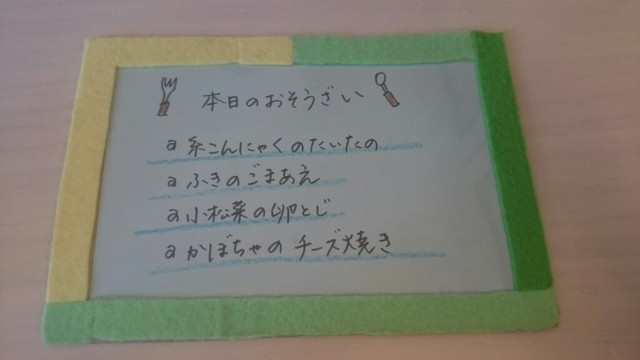 本日のおそうざい
a 糸こんにゃくのたいたの
a ふきのごまあえ
a 小松菜の卵とじ
a かぼちゃのチーズ焼き